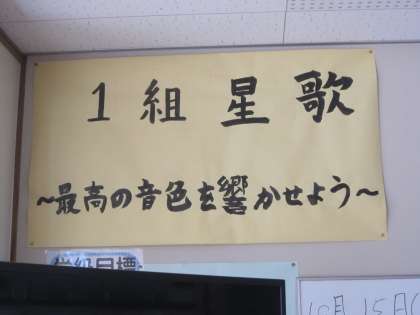 1組 星歌
～最高の音色を響かせよう～
学級目標
10月 15日(